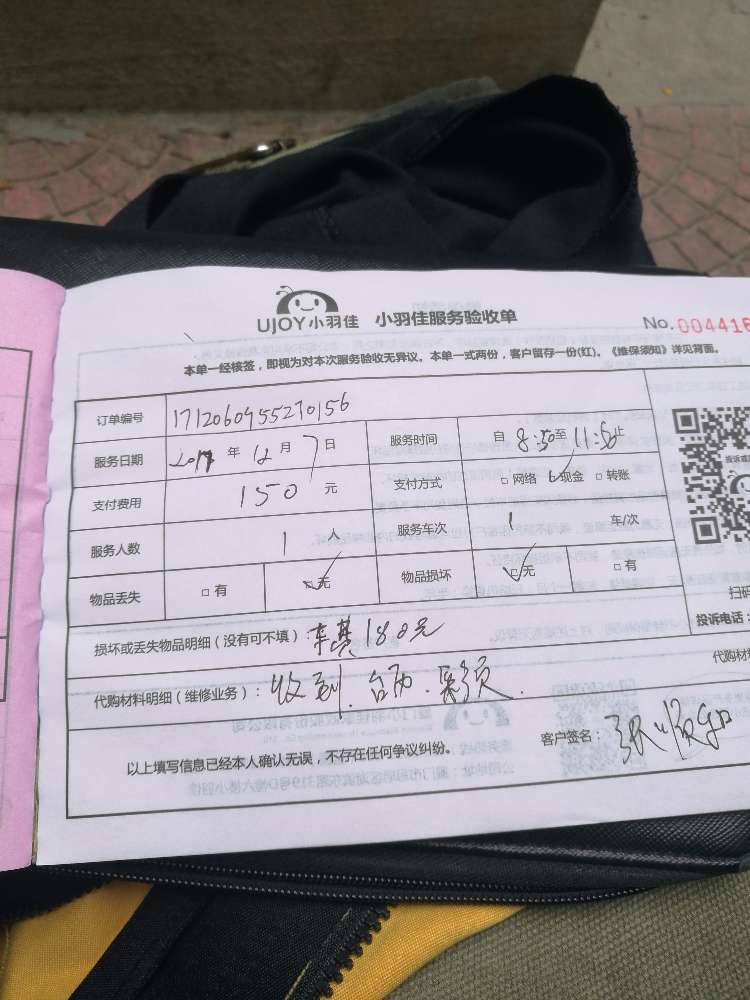 UJOY小羽佳 小羽佳服务验收单 No. 004416
本单一经核签，即视为对本次服务验收无异议。本单一式两份，客户留存一份(红)。《维保须知》详见背面。
订单编号 1712060955270156
服务日期 2017 年 12 月 7 日 服务时间 自 8:50 至 11:50 止
支付费用 150 元 支付方式 □ 网络 □ 现金 □ 转账
服务人数 1 人 服务车次 1 车/次
物品丢失 □ 有 □ 无 物品损坏 □ 无 □ 有
扫码
损坏或丢失物品明细（没有可不填）： 180元
投诉电话：
代购材料明细（维修业务）： 收到
代购材料
以上填写信息已经本人确认无误，不存在任何争议纠纷。 客户签名：